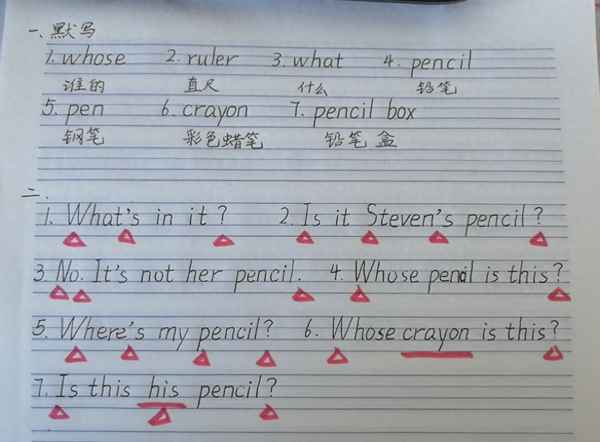 一、默写
1. whose 2. ruler 3. what 4. pencil
谁的 直尺 什么 铅笔
5. pen 6. crayon 7. pencil box
钢笔 彩色蜡笔 铅笔盒
二.
1. What's in it? 2. Is it Steven's pencil?
3. No. It's not her pencil. 4. Whose pencil is this?
5. Where's my pencil? 6. Whose crayon is this?
7. Is this his pencil?